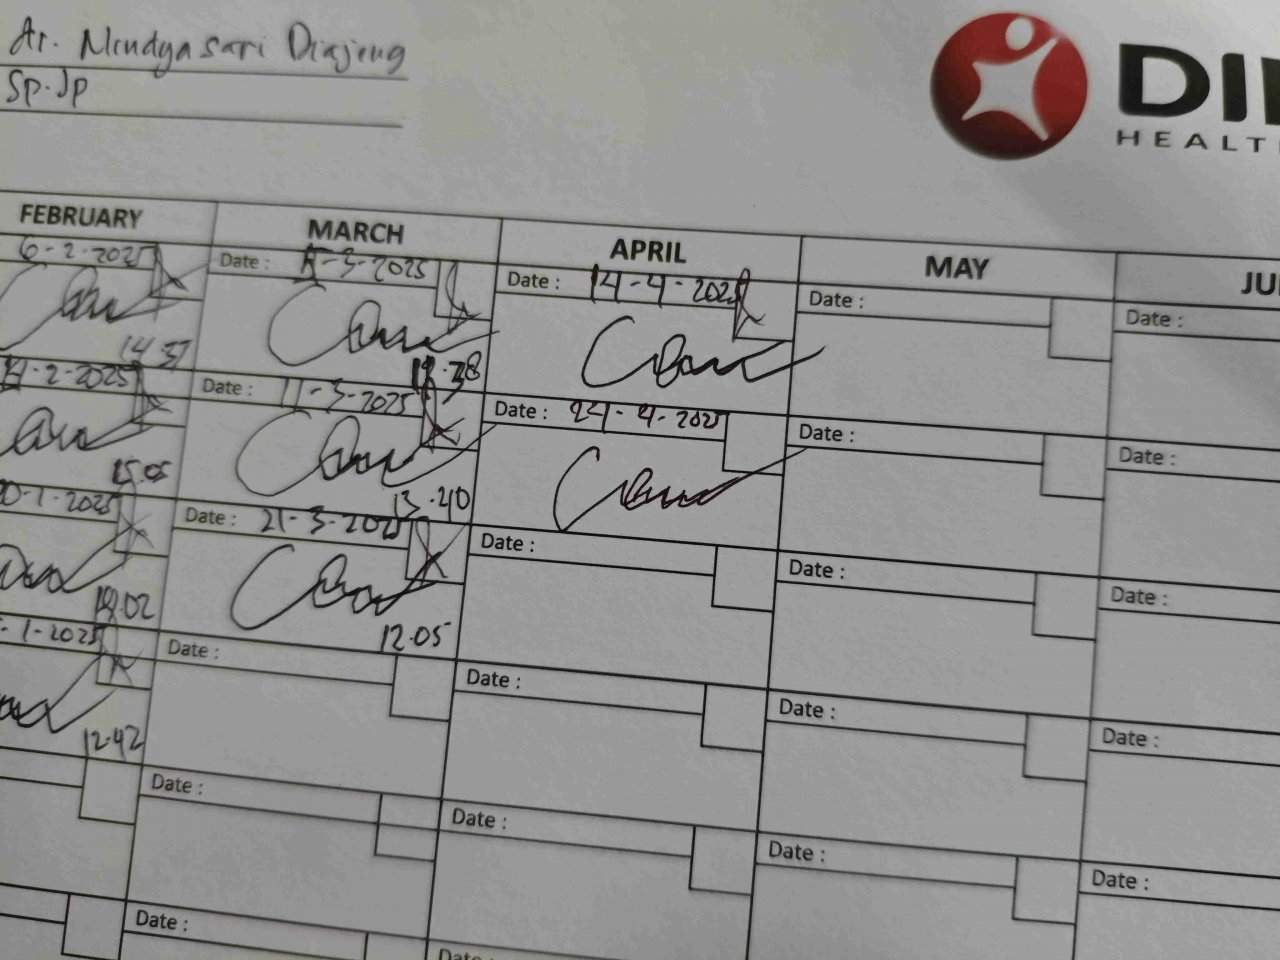 dr. Mendyasari Diajeng
Sp.Jp
DI
HEALT
FEBRUARY MARCH APRIL MAY JU
6-2-2025 Date : -3-2025 Date : 14-4-2025 Date : Date :
14.37 18.38
14-2-2025 Date : 11-3-2025 Date : 24-4-2025 Date : Date :
15.05 13.40
0-1-2025 Date : 21-3-2025 Date : Date : Date :
12.05
-1-2025 Date : Date : Date : Date :
12.42
Date : Date : Date : Date :
Date : Date :